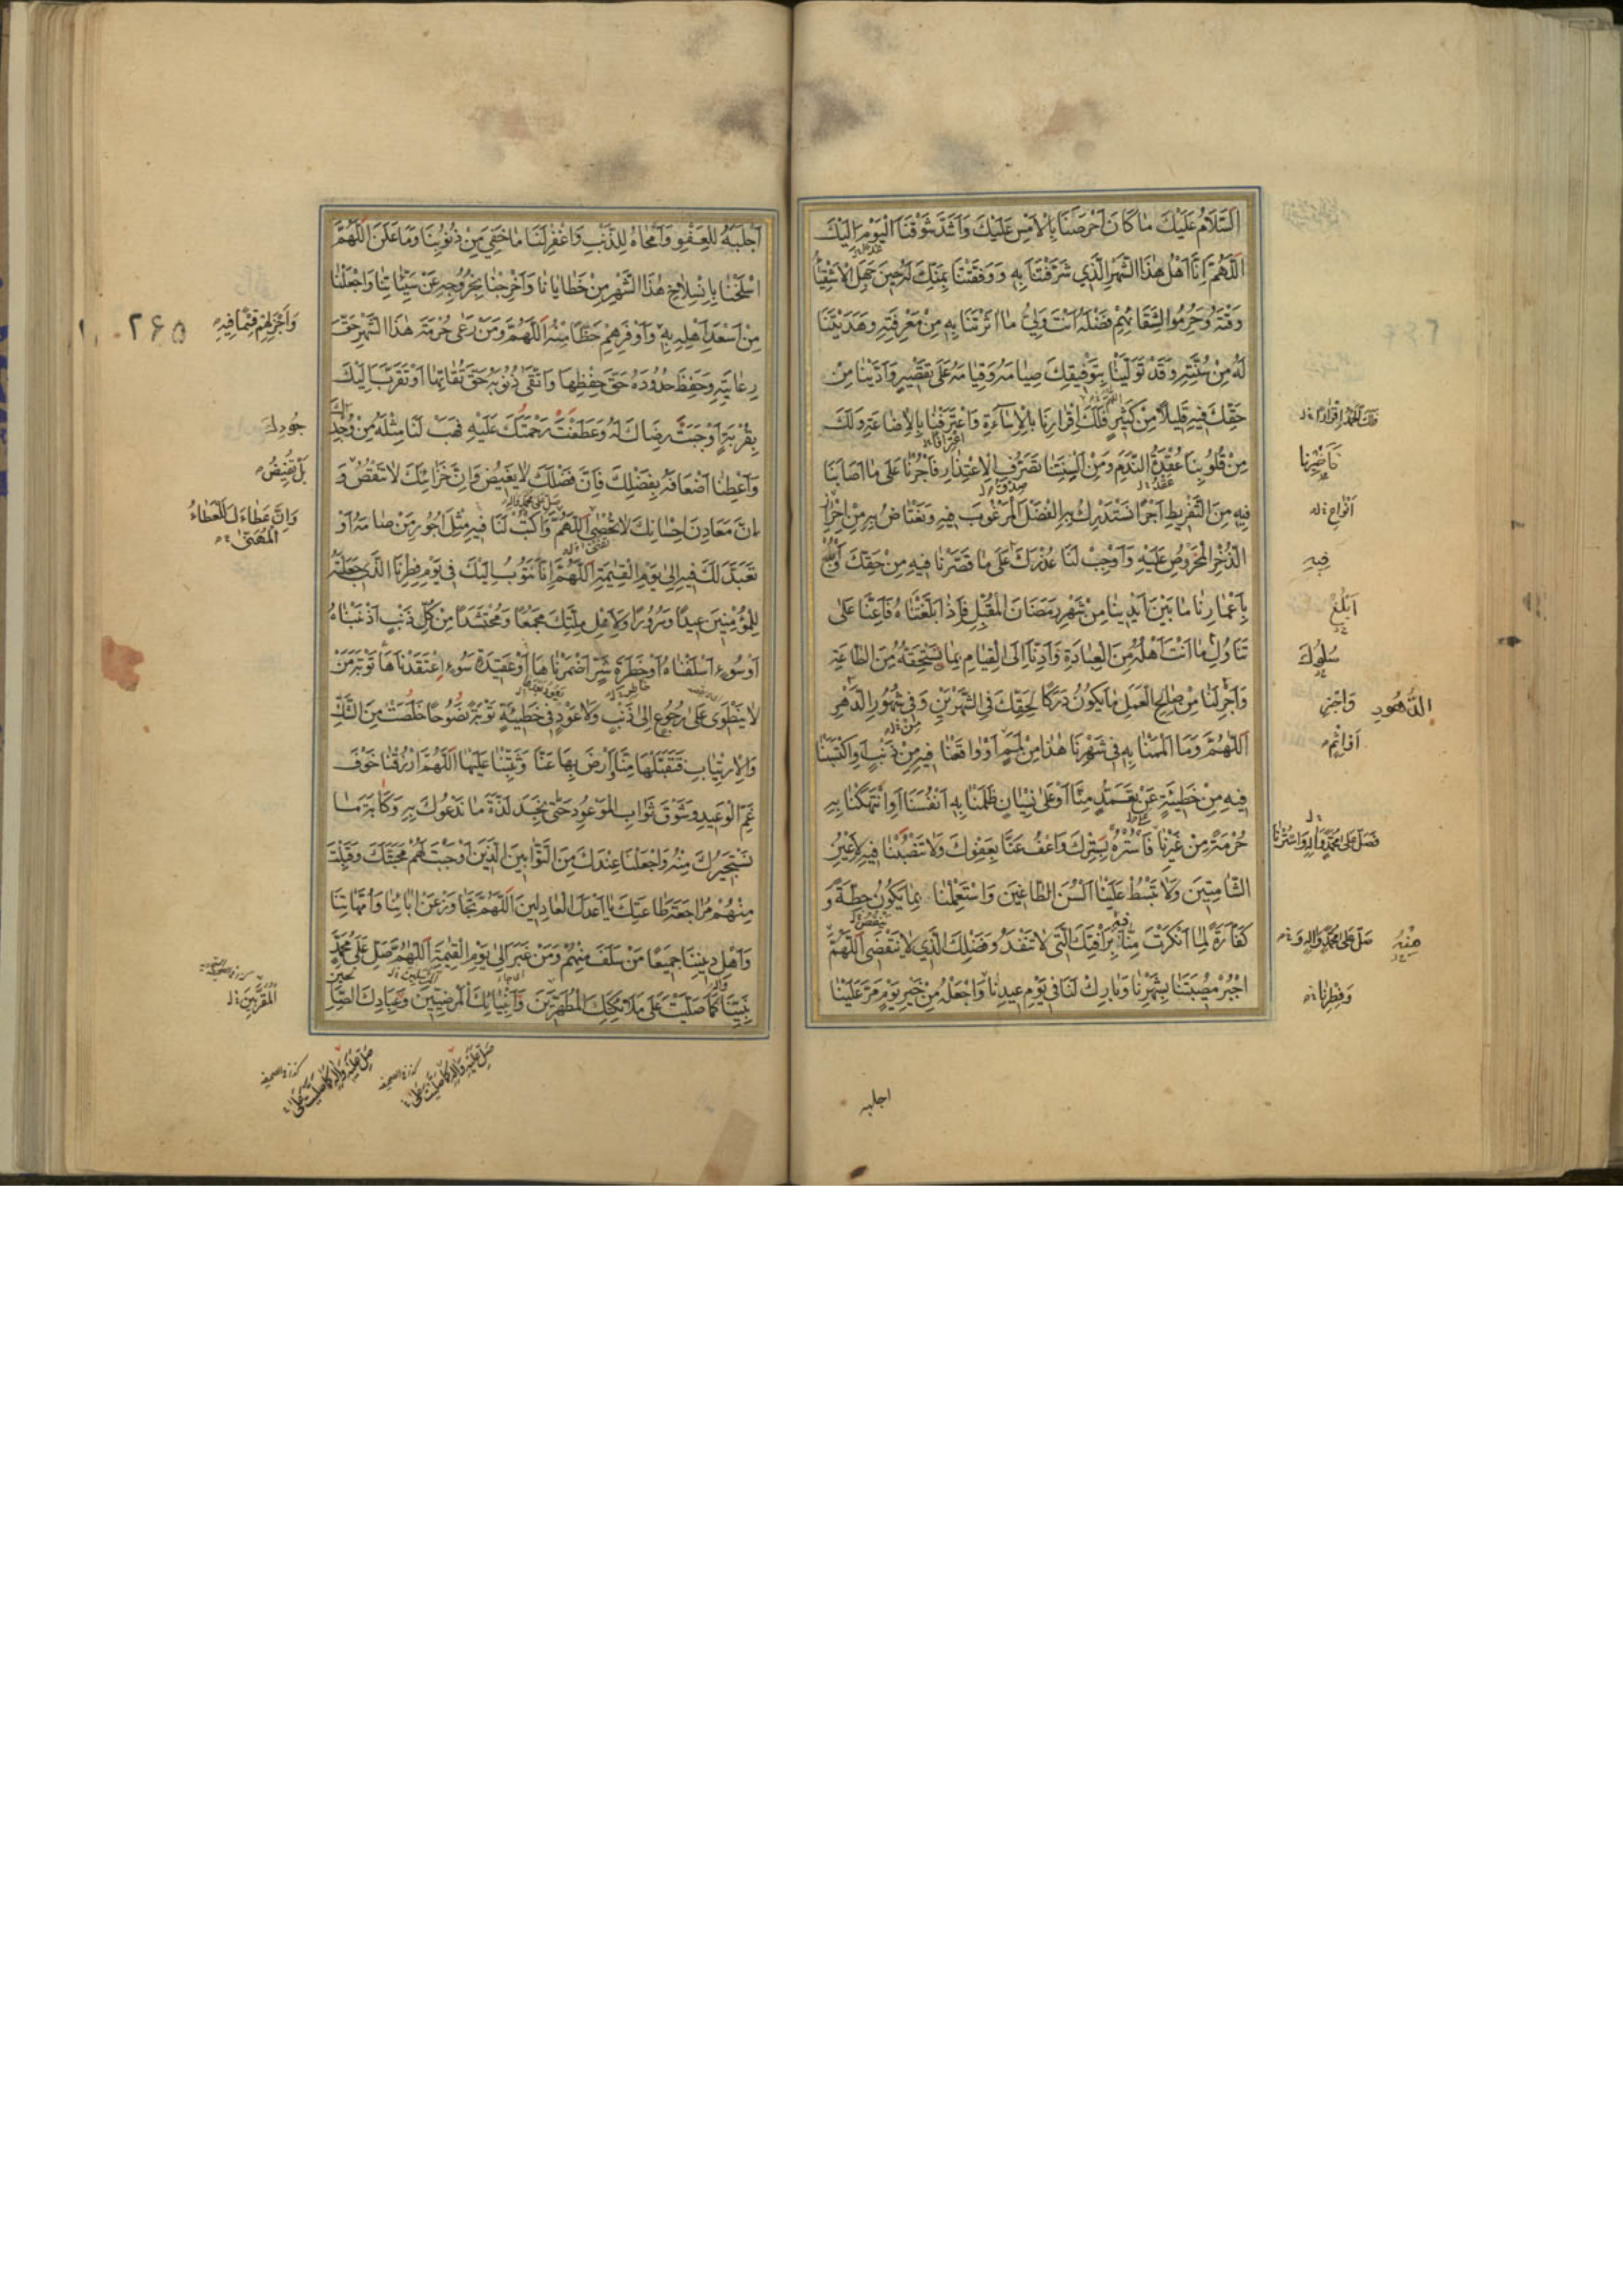 اَلسَّلَامُ عَلَيْكَ مَا كَانَ اَحْرَصَنَا بِالْاَمْسِ عَلَيْكَ وَاَشَدَّ شَوْقَنَا الْيَوْمَ اِلَيْكَ
اَللّٰهُمَّ اِنَّا اَهْلُ هٰذَا الشَّهْرِ الَّذِي شَرَّفْتَنَا بِهِ وَوَفَّقْتَنَا بِمَنِّكَ لَهُ حِينَ جَهِلَ الْاَشْقِيَاءُ
وَقْتَهُ وَحُرِمُوا لِشَقَائِهِمْ فَضْلَهُ اَنْتَ وَلِيُّ مَا اٰثَرْتَنَا بِهِ مِنْ مَعْرِفَتِهِ وَهَدَيْتَنَا
لَهُ مِنْ سُنَّتِهِ وَقَدْ تَوَلَّيْنَا بِتَوْفِيقِكَ صِيَامَهُ وَقِيَامَهُ عَلَى تَقْصِيرٍ وَاَدَّيْنَا مِنْ
حَقِّكَ فِيهِ قَلِيلًا مِنْ كَثِيرٍ فَلَكَ اِقْرَارُنَا بِالْاِسَاءَةِ وَاعْتِرَافُنَا بِالْاِضَاعَةِ وَلَكَ
مِنْ قُلُوبِنَا عُقْدَةُ النَّدَمِ وَمِنْ اَلْسِنَتِنَا تَصَرُّفُ الْاِعْتِذَارِ فَأْجُرْنَا عَلَى مَا اَصَابَنَا
فِيهِ مِنَ التَّفْرِيطِ اَجْرًا نَسْتَدْرِكُ بِهِ الْفَضْلَ الْمَرْغُوبَ فِيهِ وَنَعْتَاضُ بِهِ مِنْ اِحْرَازِ
الذُّخْرِ الْمَحْرُوصِ عَلَيْهِ وَاَوْجِبْ لَنَا عُذْرَكَ عَلَى مَا قَصَّرْنَا فِيهِ مِنْ حَقِّكَ
بِاَعْمَارِنَا مَا بَيْنَ اَيْدِينَا مِنْ شَهْرِ رَمَضَانَ الْمُقْبِلِ فَاِذَا بَلَّغْتَنَاهُ فَاَعِنَّا عَلَى
تَنَاوُلِ مَا اَنْتَ اَهْلُهُ مِنَ الْعِبَادَةِ وَاَدِّنَا اِلَى الْقِيَامِ بِمَا يَسْتَحِقُّهُ مِنَ الطَّاعَةِ
وَاَجْرِ لَنَا مِنْ صَالِحِ الْعَمَلِ مَا يَكُونُ دَرَكًا لِحَقِّكَ فِي الشَّهْرَيْنِ وَفِي شُهُورِ الدَّهْرِ
اَللّٰهُمَّ وَمَا اَلْمَمْنَا بِهِ فِي شَهْرِنَا هٰذَا مِنْ لَمَمٍ اَوْ وَاقَعْنَا فِيهِ مِنْ ذَنْبٍ وَاكْتَسَبْنَا
فِيهِ مِنْ خَطِيئَةٍ عَنْ تَعَمُّدٍ مِنَّا اَوْ عَلَى نِسْيَانٍ ظَلَمْنَا بِهِ اَنْفُسَنَا اَوِ انْتَهَكْنَا بِهِ
حُرْمَةً مِنْ غَيْرِنَا فَاسْتُرْهُ بِسِتْرِكَ وَاعْفُ عَنَّا بِعَفْوِكَ وَلَا تَنْصِبْنَا فِيهِ لِاَعْيُنِ
الشَّامِتِينَ وَلَا تَبْسُطْ عَلَيْنَا اَلْسُنَ الطَّاغِينَ وَاسْتَعْمِلْنَا بِمَا يَكُونُ حِطَّةً وَ
كَفَّارَةً لِمَا اَنْكَرْتَ مِنَّا فِيهِ بِرَأْفَتِكَ الَّتِي لَا تَنْفَدُ وَفَضْلِكَ الَّذِي لَا يَنْقَضِي اَللّٰهُمَّ
اجْبُرْ مُصِيبَتَنَا بِشَهْرِنَا وَبَارِكْ لَنَا فِي يَوْمِ عِيدِنَا وَاجْعَلْهُ مِنْ خَيْرِ يَوْمٍ مَرَّ عَلَيْنَا
اَنْوَاعِ
فِيهِ
اَبْلِغْ
سُلُوكَ
وَاَجْزِنِي
الدُّهُورِ
اَوْ اِثْمٍ
فَصَلِّ عَلَى مُحَمَّدٍ وَاٰلِهِ وَاسْتُرْنَا
صَلِّ عَلَى مُحَمَّدٍ وَاٰلِهِ وَ
مِنْهُ
وَفِطْرِنَا
اجلبه
اَجْلَبَهُ لِلْعَفْوِ وَاَمْحَاهُ لِلذَّنْبِ وَاغْفِرْ لَنَا مَا خَفِيَ مِنْ ذُنُوبِنَا وَمَا عَلَنَ اَللّٰهُمَّ
اسْلَخْنَا بِانْسِلَاخِ هٰذَا الشَّهْرِ مِنْ خَطَايَانَا وَاَخْرِجْنَا بِخُرُوجِهِ عَنْ سَيِّئَاتِنَا وَاجْعَلْنَا
مِنْ اَسْعَدِ اَهْلِهِ بِهِ وَاَوْفَرِهِمْ حَظًّا مِنْهُ اَللّٰهُمَّ وَمَنْ رَعَى حُرْمَةَ هٰذَا الشَّهْرِ حَقَّ
رِعَايَتِهِ وَحَفِظَ حُدُودَهُ حَقَّ حِفْظِهَا وَاتَّقَى ذُنُوبَهُ حَقَّ تُقَاتِهَا اَوْ تَقَرَّبَ اِلَيْكَ
بِقُرْبَةٍ اَوْجَبَتْ رِضَاكَ لَهُ وَعَطَفَتْ رَحْمَتَكَ عَلَيْهِ فَهَبْ لَنَا مِثْلَهُ مِنْ وُجْدِكَ
وَاَعْطِنَا اَضْعَافَهُ بِفَضْلِكَ فَاِنَّ فَضْلَكَ لَا يَغِيضُ وَاِنَّ خَزَائِنَكَ لَا تَنْقُصُ وَ
اِنَّ مَعَادِنَ اِحْسَانِكَ لَا تُحْصَى اَللّٰهُمَّ وَاكْتُبْ لَنَا فِيهِ مِثْلَ اُجُورِ مَنْ صَامَهُ اَوْ
تَعَبَّدَ لَكَ فِيهِ اِلَى يَوْمِ الْقِيٰمَةِ اَللّٰهُمَّ اِنَّا نَتُوبُ اِلَيْكَ فِي يَوْمِ فِطْرِنَا الَّذِي جَعَلْتَهُ
لِلْمُؤْمِنِينَ عِيدًا وَسُرُورًا وَلِاَهْلِ مِلَّتِكَ مَجْمَعًا وَمُحْتَشَدًا مِنْ كُلِّ ذَنْبٍ اَذْنَبْنَاهُ
اَوْ سُوءٍ اَسْلَفْنَاهُ اَوْ خَطْرَةِ شَرٍّ اَضْمَرْنَاهَا اَوْ عَقِيدَةِ سُوءٍ اعْتَقَدْنَاهَا تَوْبَةَ مَنْ
لَا يَنْطَوِي عَلَى رُجُوعٍ اِلَى ذَنْبٍ وَلَا عَوْدٍ فِي خَطِيئَةٍ تَوْبَةً نَصُوحًا خَلَصَتْ مِنَ الشَّكِّ
وَالْاِرْتِيَابِ فَتَقَبَّلْهَا مِنَّا وَارْضَ بِهَا عَنَّا وَثَبِّتْنَا عَلَيْهَا اَللّٰهُمَّ ارْزُقْنَا خَوْفَ
غَمِّ الْوَعِيدِ وَشَوْقَ ثَوَابِ الْمَوْعُودِ حَتَّى نَجِدَ لَذَّةَ مَا نَدْعُوكَ بِهِ وَكَاٰبَةَ مَا
نَسْتَجِيرُكَ مِنْهُ وَاجْعَلْنَا عِنْدَكَ مِنَ التَّوَّابِينَ الَّذِينَ اَوْجَبْتَ لَهُمْ مَحَبَّتَكَ وَقَبِلْتَ
مِنْهُمْ مُرَاجَعَةَ طَاعَتِكَ يَا اَعْدَلَ الْعَادِلِينَ اَللّٰهُمَّ تَجَاوَزْ عَنْ اٰبَائِنَا وَاُمَّهَاتِنَا
وَاَهْلِ دِينِنَا جَمِيعًا مَنْ سَلَفَ مِنْهُمْ وَمَنْ غَبَرَ اِلَى يَوْمِ الْقِيٰمَةِ اَللّٰهُمَّ صَلِّ عَلَى مُحَمَّدٍ
نَبِيِّنَا وَاٰلِهِ كَمَا صَلَّيْتَ عَلَى مَلَائِكَتِكَ الْمُطَهَّرِينَ وَاَنْبِيَائِكَ الْمُرْضِيِّينَ وَعِبَادِكَ الصَّالِحِينَ
۲۶۵
جُودِكَ
بَلْ تُفِيضُ
وَاِنَّ عَطَاءَكَ لَلْعَطَاءُ
الْمُهَنَّى
الْمُقَرَّبِينَ
صَلِّ عَلَيْهِ وَاٰلِهِ كَمَا صَلَّيْتَ عَلَى
صَلِّ عَلَيْهِ وَاٰلِهِ كَمَا صَلَّيْتَ عَلَى